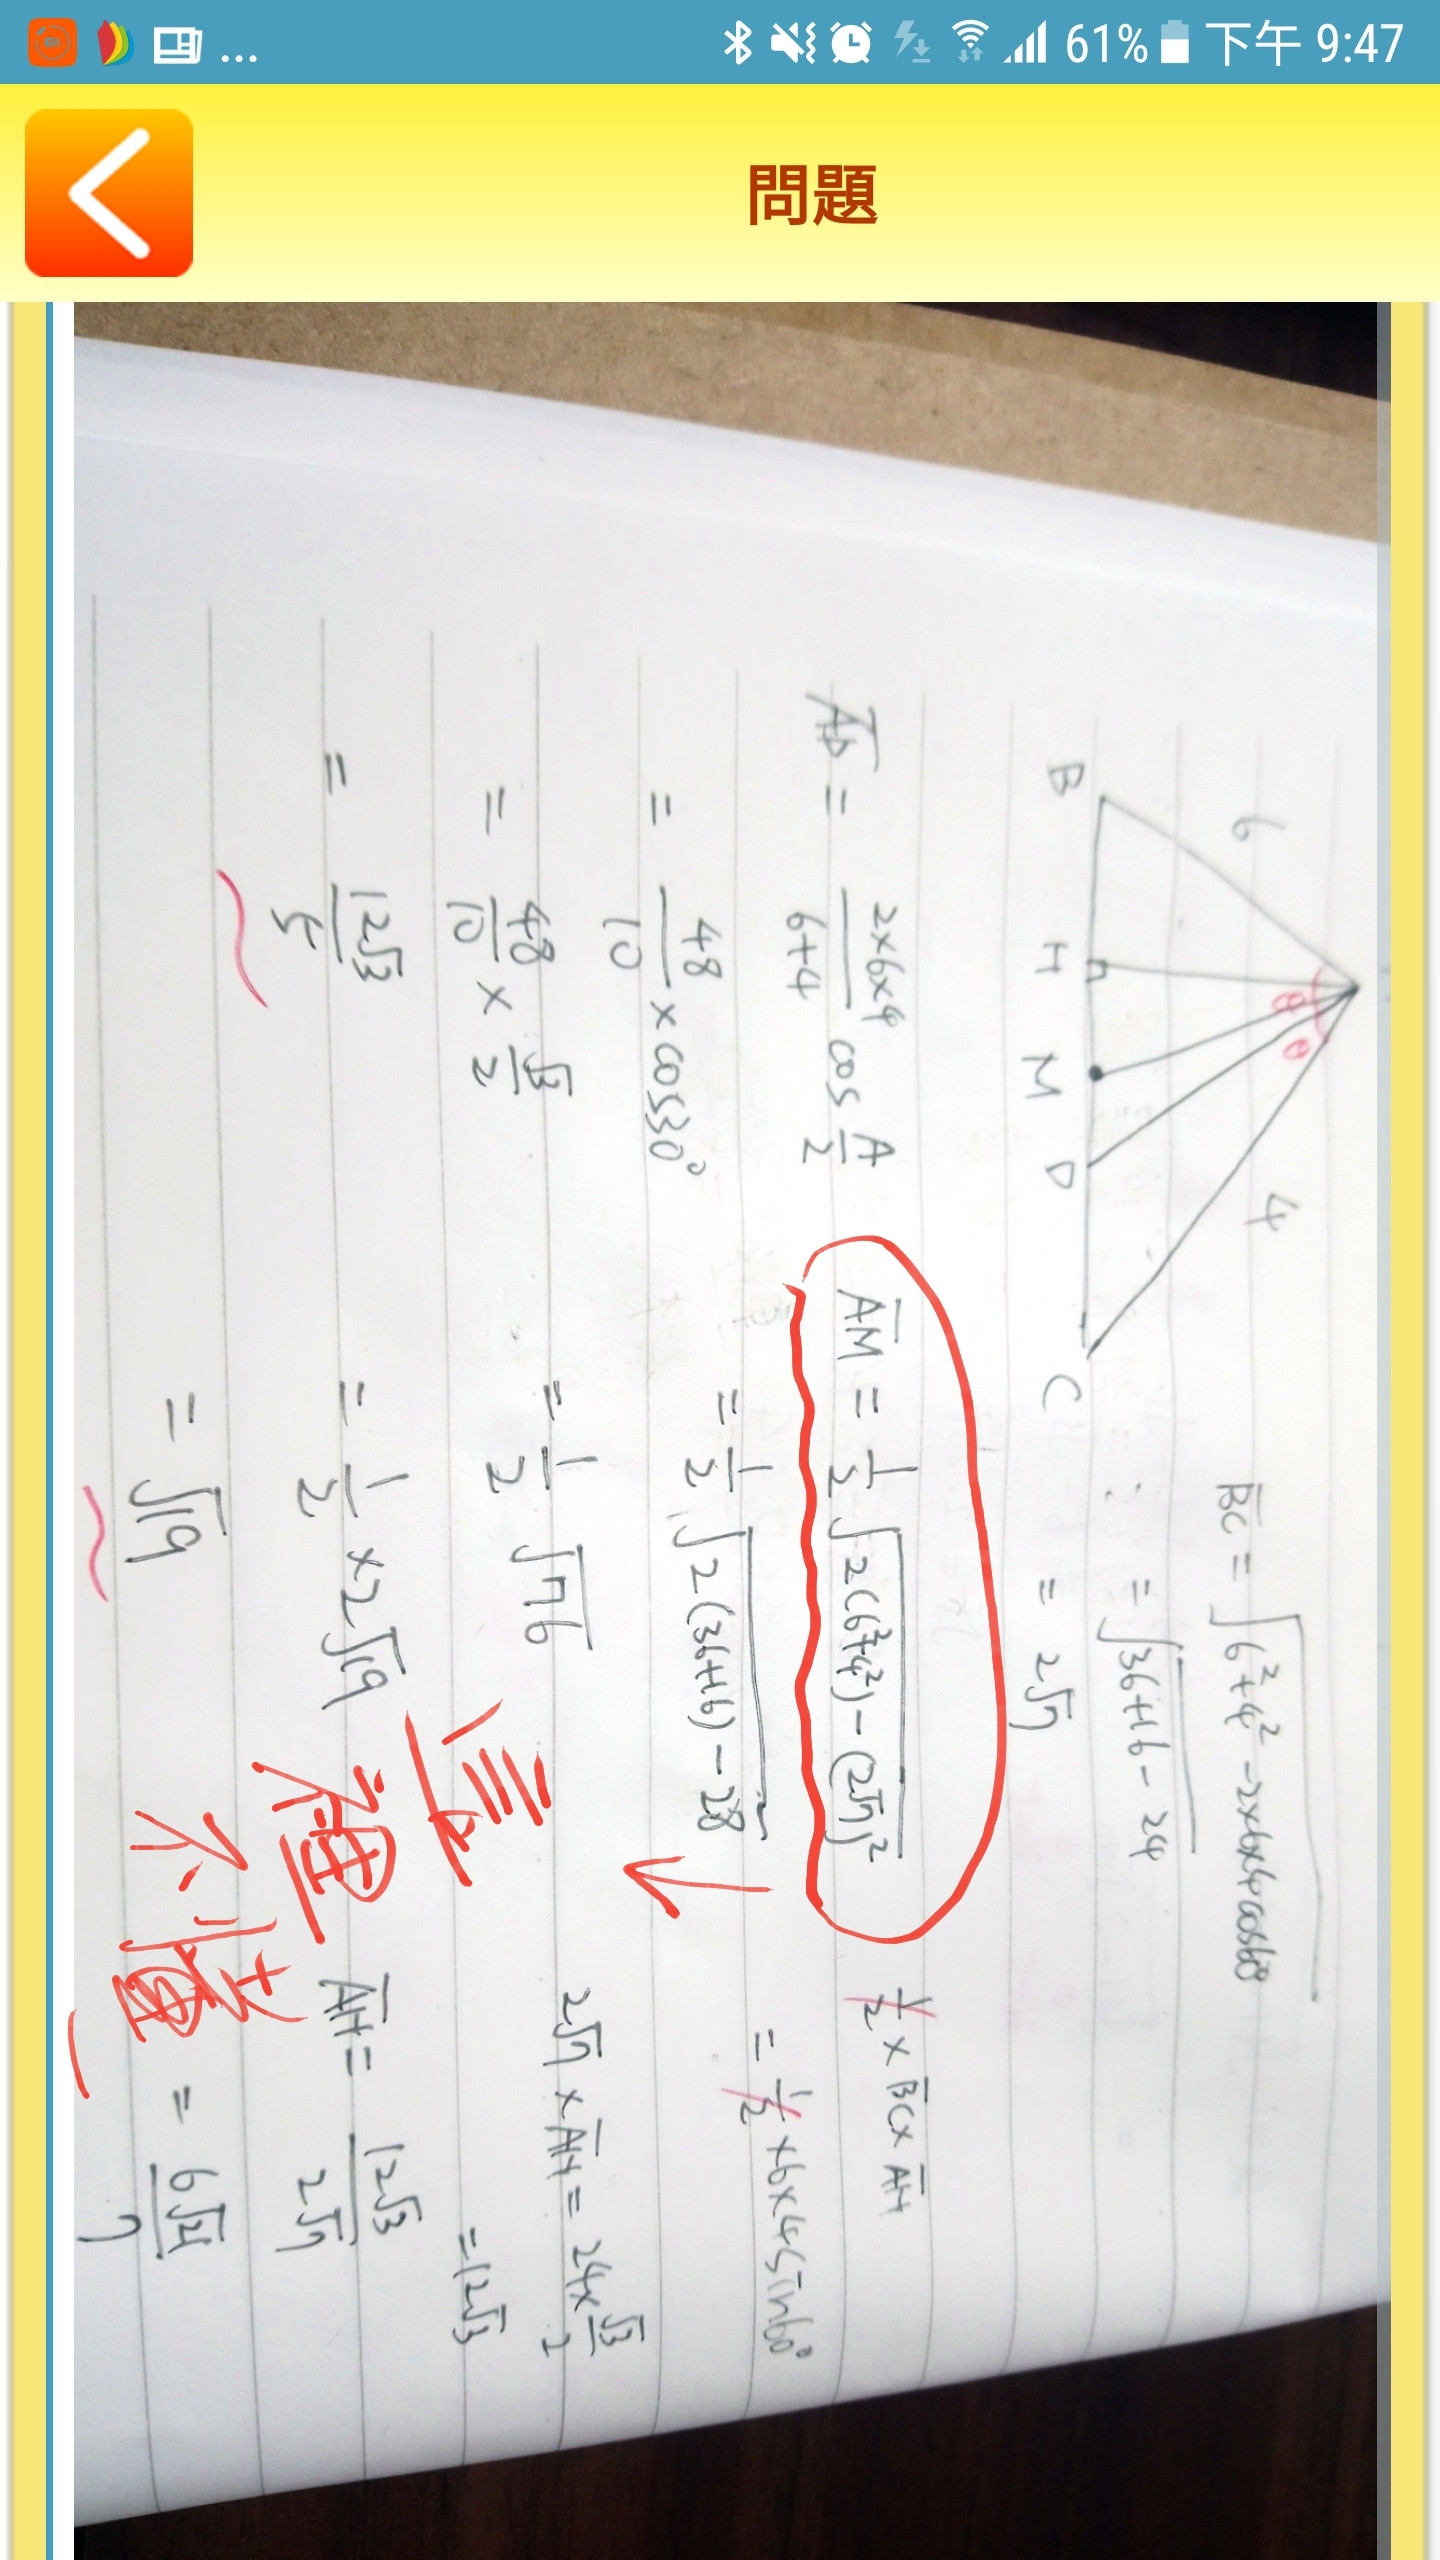 61% 下午 9:47
問題
6
4
θ θ
B H M D C
BC = √6²+4²-2×6×4cos60°
= √36+16-24
= 2√7
AD = 2×6×4/6+4 cos A/2
= 48/10 × cos30°
= 48/10 × √3/2
= 12√3/5
AM = 1/2 √2(6²+4²)-(2√7)²
= 1/2 √2(36+16)-28
= 1/2 √76
= 1/2 ×2√19
= √19
這裡不懂
1/2 × BC × AH
= 1/2 ×6×4sin60°
2√7 × AH = 24×√3/2
=12√3
AH = 12√3/2√7
= 6√21/7